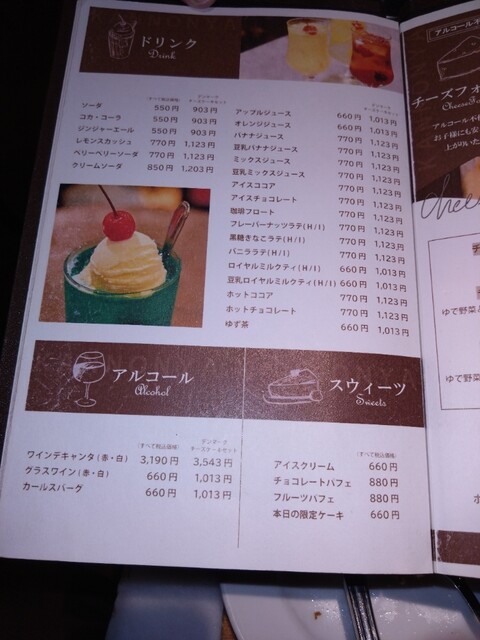 ドリンク
Drink
(すべて税込価格)
ソーダ 550円 903円
コカ・コーラ 550円 903円
ジンジャーエール 550円 903円
レモンスカッシュ 770円 1,123円
ベリーベリーソーダ 770円 1,123円
クリームソーダ 850円 1,203円
アップルジュース 660円 1,013円
オレンジジュース 660円 1,013円
バナナジュース 770円 1,123円
豆乳バナナジュース 770円 1,123円
ミックスジュース 770円 1,123円
豆乳ミックスジュース 770円 1,123円
アイスココア 770円 1,123円
アイスチョコレート 770円 1,123円
珈琲フロート 770円 1,123円
フレーバーナッツラテ(H/I) 770円 1,123円
黒糖きなこラテ(H/I) 770円 1,123円
バニララテ(H/I) 770円 1,123円
ロイヤルミルクティ(H/I) 660円 1,013円
豆乳ロイヤルミルクティ(H/I) 660円 1,013円
ホットココア 770円 1,123円
ホットチョコレート 770円 1,123円
ゆず茶 660円 1,013円
アルコール
Alcohol
(すべて税込価格)
ワインデキャンタ(赤・白) 3,190円 3,543円
グラスワイン(赤・白) 660円 1,013円
カールスバーグ 660円 1,013円
スウィーツ
Sweets
(すべて税込価格)
アイスクリーム 660円
チョコレートパフェ 880円
フルーツパフェ 880円
本日の限定ケーキ 660円
チーズフォ
アルコール不
お子様にも安
上がりいた
Chee
ゆで野菜
ゆで野菜